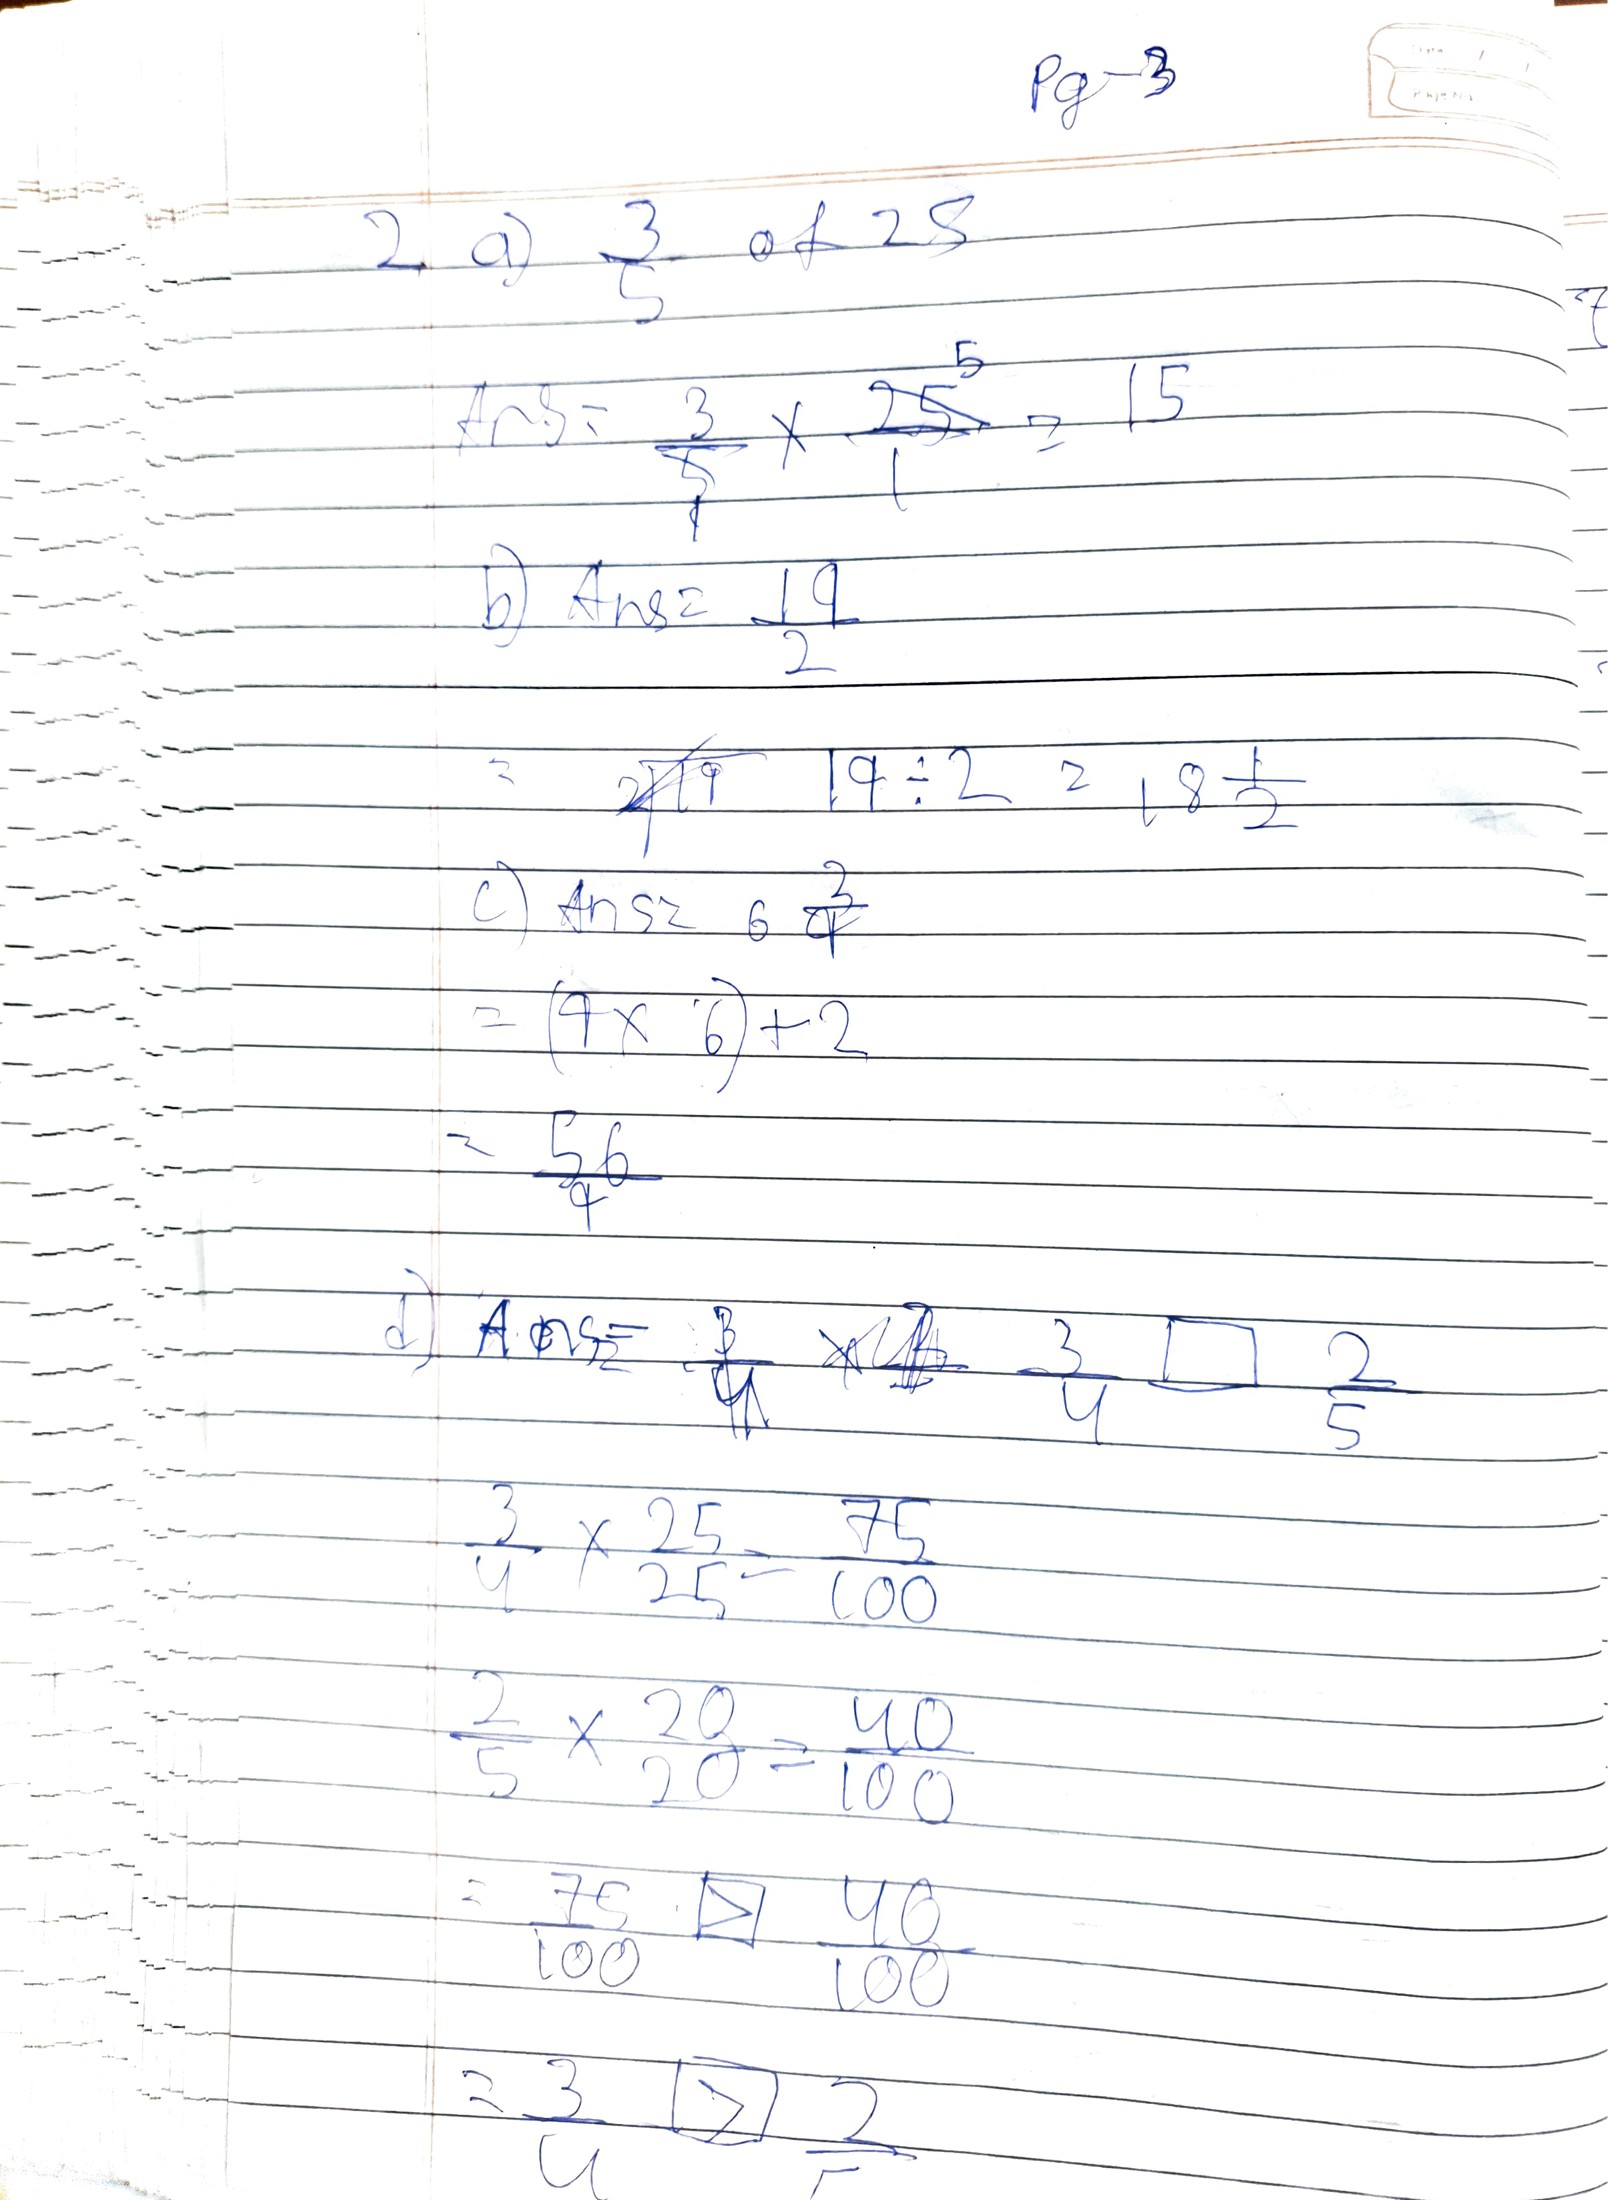 Pg-3
2. a) 3/5 of 25
Ans = 3/5 × 25/1 = 15
5
1
b) Ans = 19/2
= 2)19 19 ÷ 2 = 18 1/2
c) Ans = 6 2/9
= (9 × 6) + 2
= 56/9
d) Ans = 3/4 × 3/4 □ 2/5
3/4 × 25/25 = 75/100
2/5 × 20/20 = 40/100
= 75/100 > 40/100
= 3/4 > 2/5